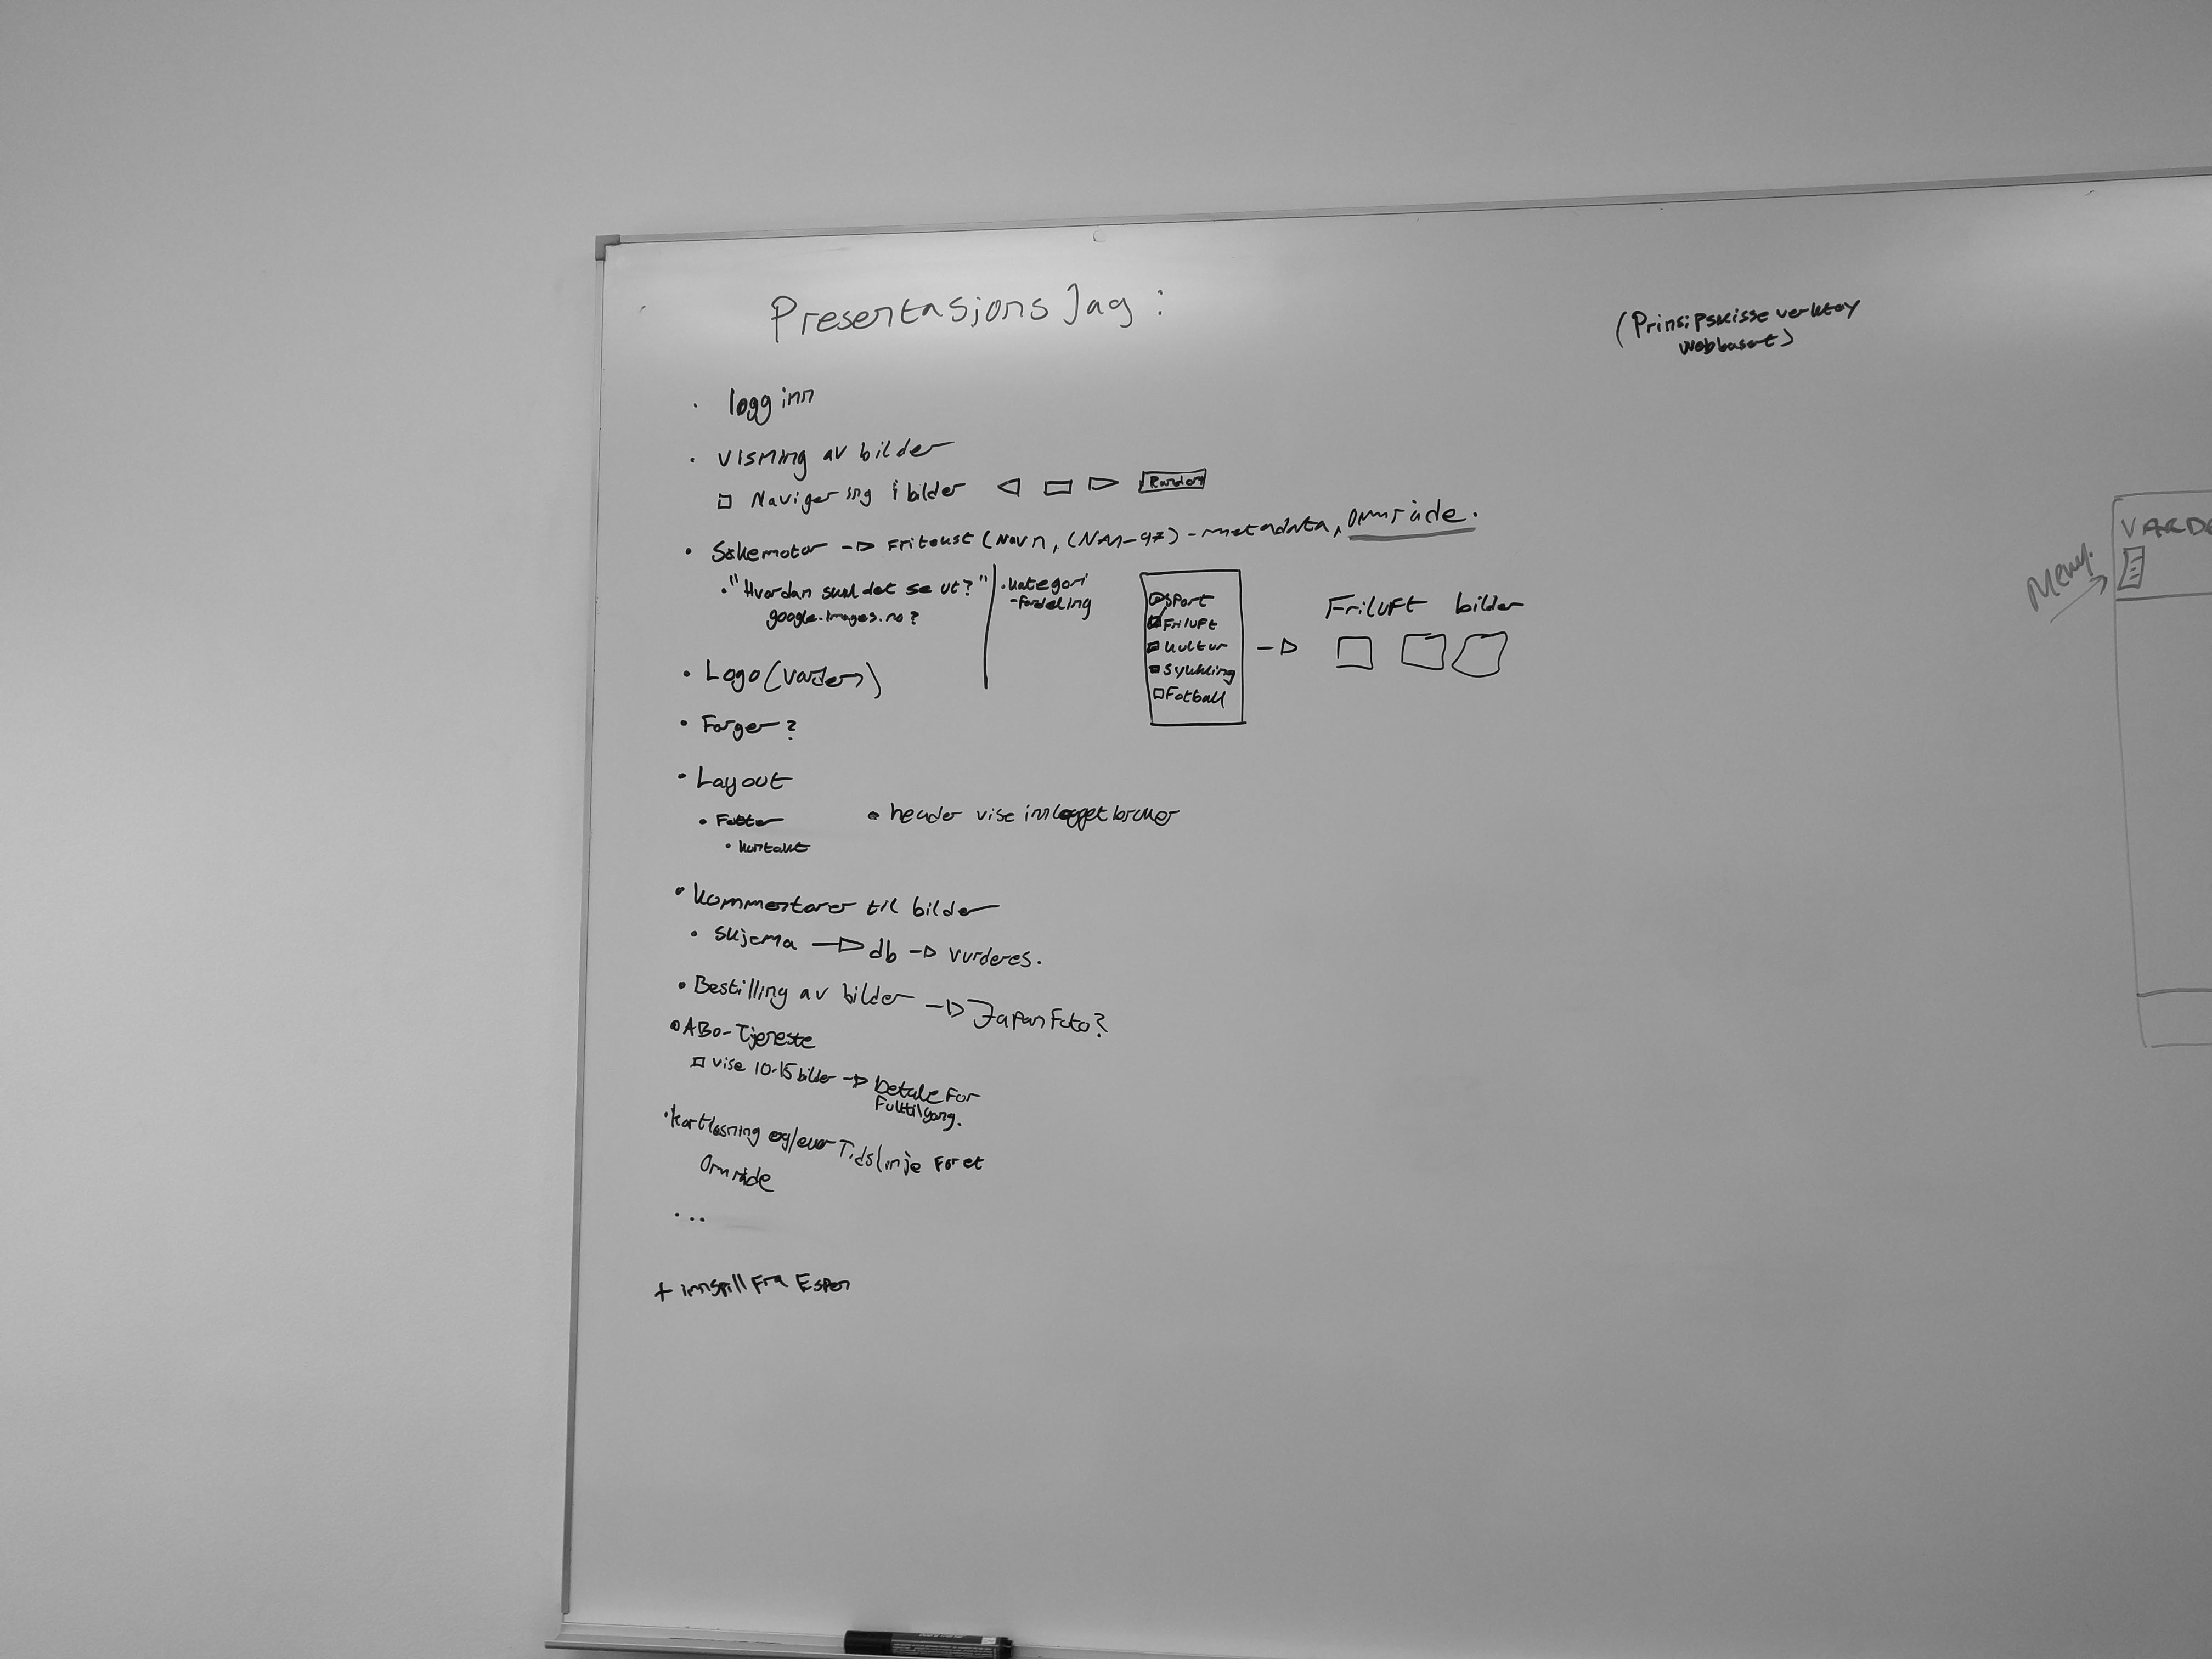 Presentasjonslag:
(Prinsipskisse verktøy
webbasert)
• logg inn
• visning av bilder
□ Navigering i bilder ◁ □ ▷ Random
• Søkemotor -▷ Fritekst (Navn, ) - metadata, område.
• "Hvordan skal det se ut?"
google.images.no?
• kategori
-fordeling
Sport
Friluft
Kultur
Sykkling
Fotball
-▷ Friluft bilder
• Logo (varden)
• Farger?
• Layout
• Footer
• kontakt
• header vise innlogget bruker
• Kommentarer til bilder
• skjema -▷ db -▷ vurderes.
• Bestilling av bilder -▷ Japan Foto?
• ABO-Tjeneste
□ vise 10-15 bilder -▷ betale for
full tilgang.
• Kartløsning og/eller Tidslinje for et
Område
• ...
+ innspill fra Espen
Meny
VARDE